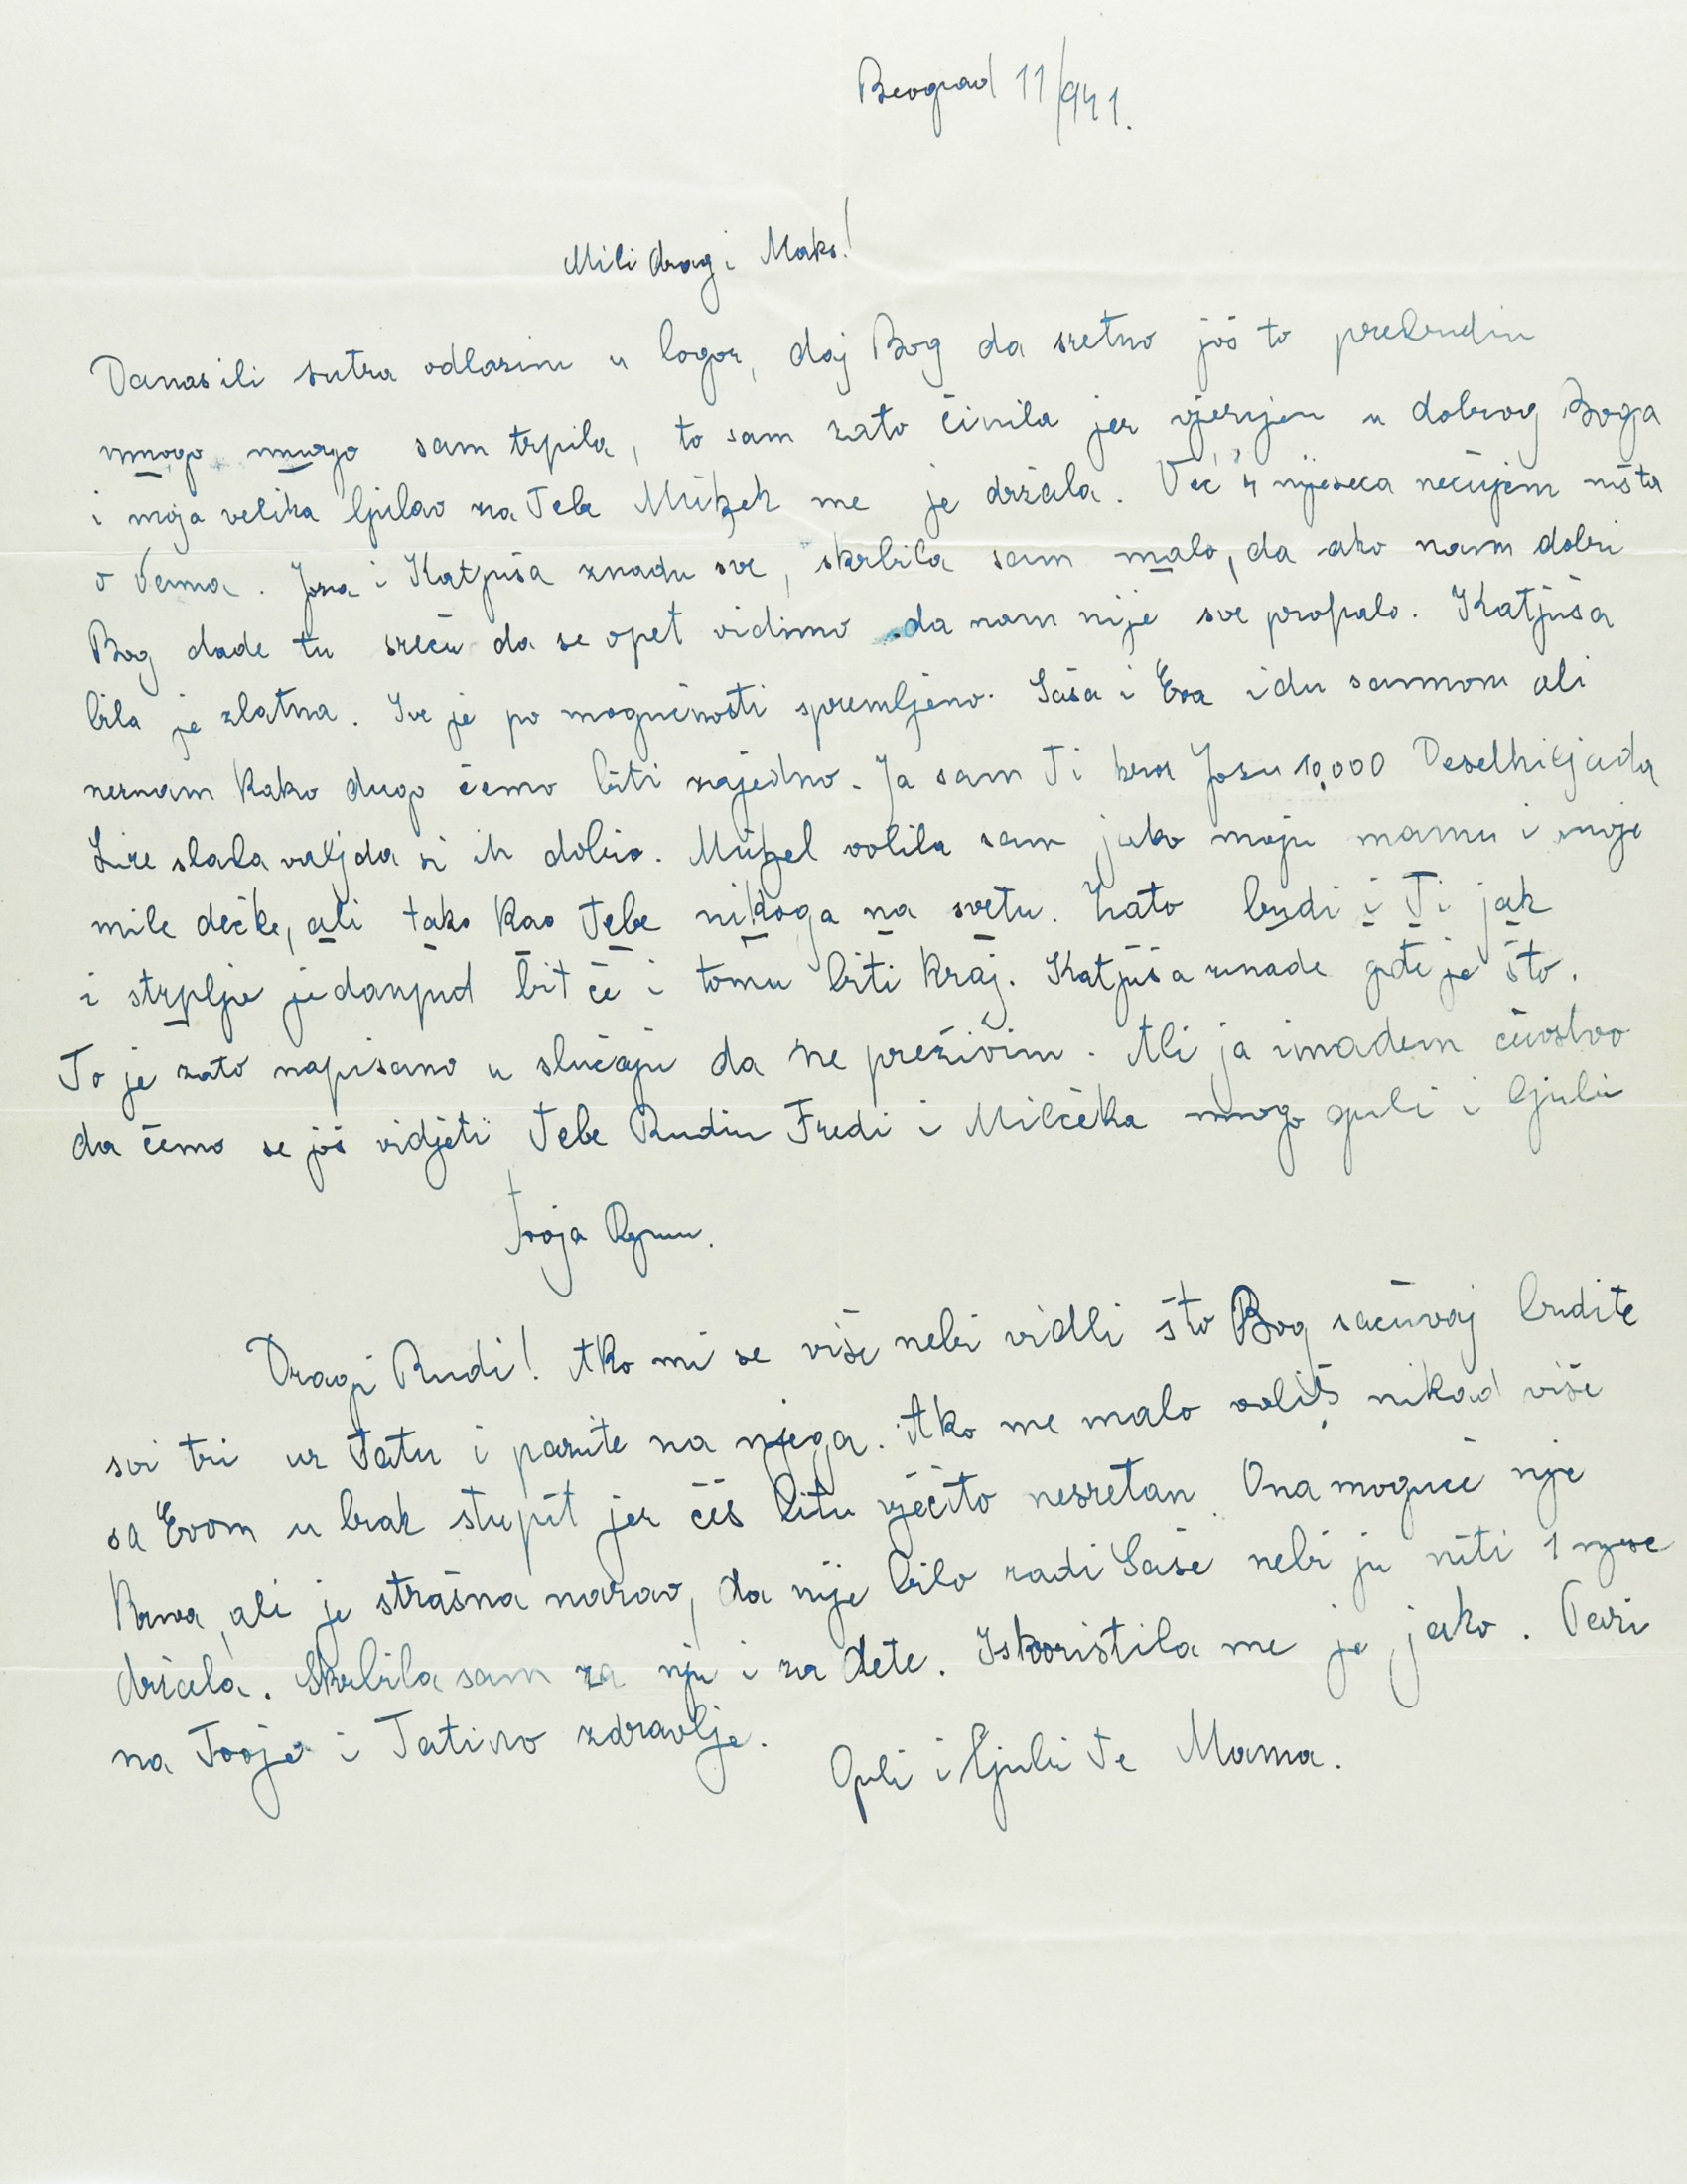 Beograd 11/941.
Mili dragi Maks!
Danas ili sutra odlazim u logor, daj Bog da sretno još to prebrudim
mnogo mnogo sam trpila, to sam zato činila jer vjerujem u dobrog Boga
i moja velika ljubav za Tebe me je držala. Već 4 mjeseca nečujem ništa
o Vama. Joza i Katjuša znadu sve, skrbila sam malo, da ako nam dobri
Bog dade tu sreću da se opet vidimo da nam nije sve propalo. Katjuša
bila je zlatna. Sve je po mogućnosti spremljeno. Saša i Eva idu samnom ali
neznam kako dugo ćemo biti zajedno. Ja sam Ti kroz Jozu 10,000 Desethiljada
Lire slala valjda si ih dobio. volila sam jako moju mamu i moje
mile dečke, ali tako kao Tebe nikoga na svetu. Zato budi i Ti jak
i strplje jedanput bit će i tomu biti kraj. Katjuša znade gdi je što.
To je zato napisano u slučaju da ne preživim. Ali ja imadem čuvstvo
da ćemo se još vidjeti Tebe Rudiu Fredi i Milčeka mnogo grli i ljubi
Tvoja
Dragi Rudi! Ako mi se više nebi vidli što Bog sačuvaj budite
svi tri uz Tatu i pazite na njega. Ako me malo voliš nikad više
sa Evom u brak stupit jer ćeš bitu vječito nesretan. Ona moguće nije
kriva, ali je strašna narav, da nije bilo radi Saše nebi ju niti 1
držala. Skrbila sam za nju i za dete. Iskoristila me je jako. Pazi
na Tvoje i Tatino zdravlje.
Grli i ljubi Te Mama.